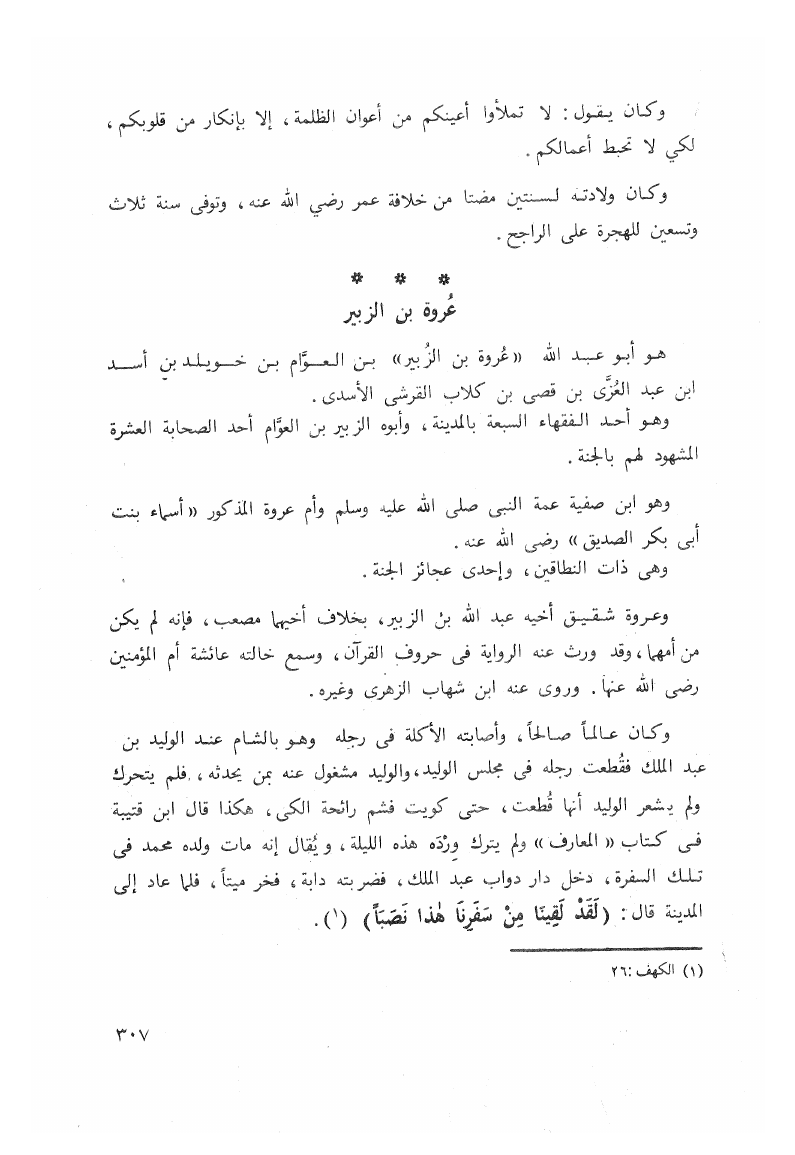 وكان يقول: لا تملأوا أعينكم من أعوان الظلمة، إلا بإنكار من قلوبكم،
لكي لا تحبط أعمالكم.
وكان ولادته لسنتين مضتا من خلافة عمر رضي الله عنه، وتوفى سنة ثلاث
وتسعين للهجرة على الراجح.
* * *
عُروة بن الزبير
هو أبو عبد الله «عُروة بن الزُبير» بن العوَّام بن خويلد بن أسد
ابن عبد العُزَّى بن قصى بن كلاب القرشى الأسدى.
وهو أحد الفقهاء السبعة بالمدينة، وأبوه الزبير بن العوَّام أحد الصحابة العشرة
المشهود لهم بالجنة.
وهو ابن صفية عمة النبى صلى الله عليه وسلم وأم عروة المذكور «أسماء بنت
أبى بكر الصديق» رضى الله عنه.
وهى ذات النطاقين، وإحدى عجائز الجنة.
وعروة شقيق أخيه عبد الله بن الزبير، بخلاف أخيهما مصعب، فإنه لم يكن
من أمهما، وقد ورث عنه الرواية فى حروف القرآن، وسمع خالته عائشة أم المؤمنين
رضى الله عنها. وروى عنه ابن شهاب الزهرى وغيره.
وكان عالماً صالحاً، وأصابته الأكلة فى رجله وهو بالشام عند الوليد بن
عبد الملك فقُطعت رجله فى مجلس الوليد، والوليد مشغول عنه بمن يحدثه، فلم يتحرك
ولم يشعر الوليد أنها قُطعت، حتى كويت فشم رائحة الكى، هكذا قال ابن قتيبة
فى كتاب «المعارف» ولم يترك وِرْدَه هذه الليلة، ويُقال إنه مات ولده محمد فى
تلك السفرة، دخل دار دواب عبد الملك، فضربته دابة، فخر ميتاً، فلما عاد إلى
المدينة قال: (لَقَدْ لَقِينَا مِنْ سَفَرِنَا هٰذا نَصَبَاً) (١).
(١) الكهف: ٢٦
٣٠٧